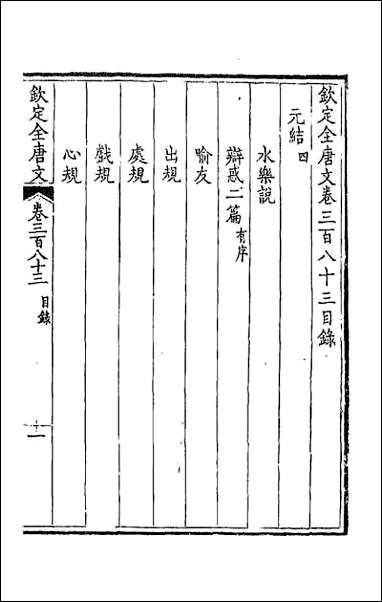 欽定全唐文卷三百八十三目錄
元結四
水樂說
辯惑二篇有序
喻友
出規
處規
戲規
心規
欽定全唐文
卷三百八十三
目錄
一